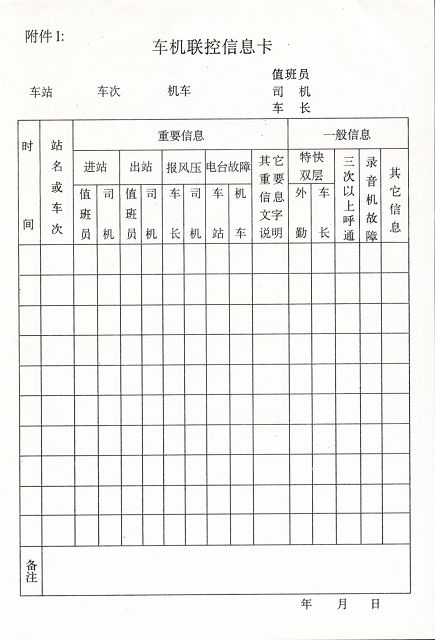 附件1:
车机联控信息卡
值班员
车站 车次 机车 司机
车长
时间 站名或车次 重要信息 一般信息
进站 出站 报风压 电台故障 其它重要信息文字说明 特快双层 三次以上呼通 录音机故障 其它信息
值班员 司机 值班员 司机 车长 司机 车站 机车 外勤 车长
备注
年 月 日